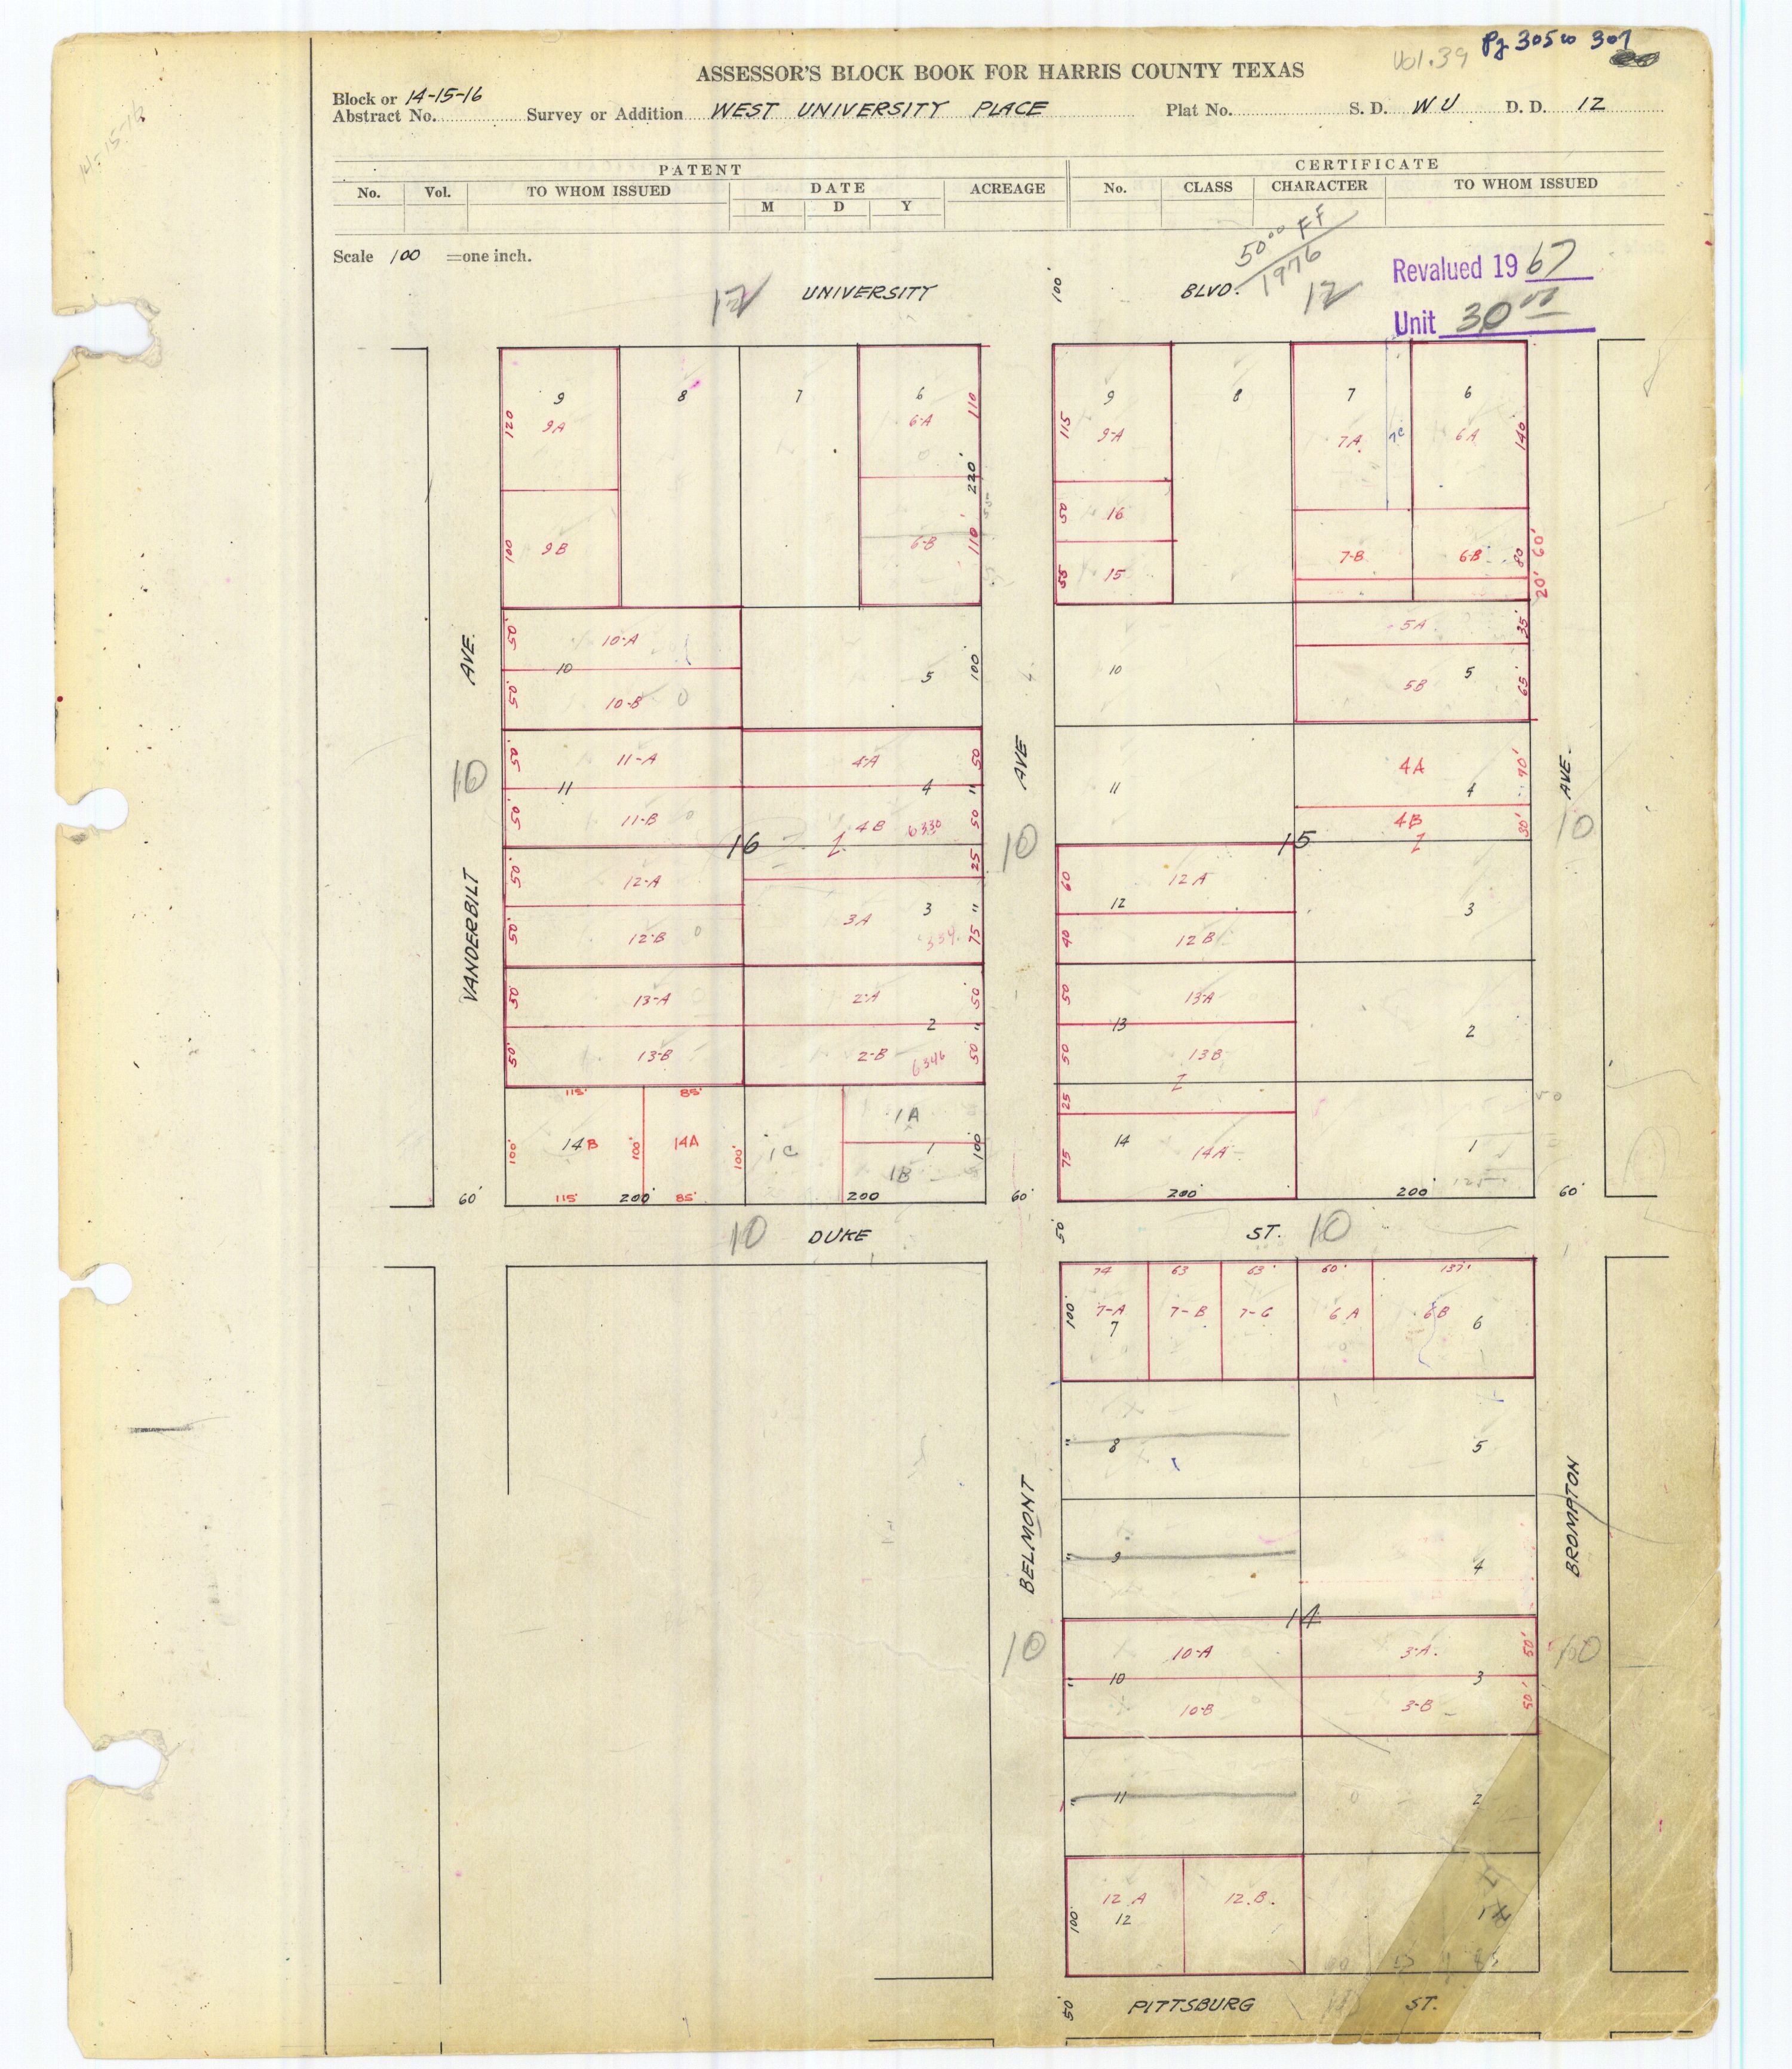 Vol. 39 Pg 305 to 307
ASSESSOR'S BLOCK BOOK FOR HARRIS COUNTY TEXAS
Block or 14-15-16
Abstract No. Survey or Addition WEST UNIVERSITY PLACE Plat No. S. D. WU D. D. 12
14-15-16
PATENT CERTIFICATE
No. Vol. TO WHOM ISSUED DATE ACREAGE No. CLASS CHARACTER TO WHOM ISSUED
M D Y
Scale 100 =one inch.
50⁰⁰ FF
1976
Revalued 1967
Unit 30⁰⁰
12 UNIVERSITY 100' BLVD. 12
9 8 7 6 9 8 7 6
120 9A 6-A 110 115 9-A 7A 7C 6A 140
220'
50 16
100 9B 6-B 110' 7-B 6-B 80 60'
55 15 20'
50' 10-A 5A 35'
10 5 100' 10 5
50' 10-B 5B 65'
AVE.
50' 11-A 4-A 50 4A 70'
11 4 " 11 4
50' 11-B 4B 6330 50 4B 30'
10 AVE 10 AVE. 10
16 15
25
50' 12-A 60 12A
3A 3 " 12 3
50' 12-B 75 40 12B
VANDERBILT
50' 13-A 2-A 50' 50 13-A
2 " 13 2
50' 13-B 2-B 6346 50' 50 13B
115' 85' 25
1A
100' 14B 100' 14A 100' 1C 1 100' 14 14A 1
1B 75
60' 115' 200' 85' 200 60' 200' 200' 60'
10 DUKE 50' ST. 10
74 63 63' 60' 137'
100' 7-A 7-B 7-C 6A 6B 6
7
" 8 5
BELMONT BROMPTON
" 9 4
14
10-A 3-A. 50'
10 10
" 10 3
10-B 3-B 50'
" 11 2
12A 12.B.
100' 12
50' PITTSBURG ST.